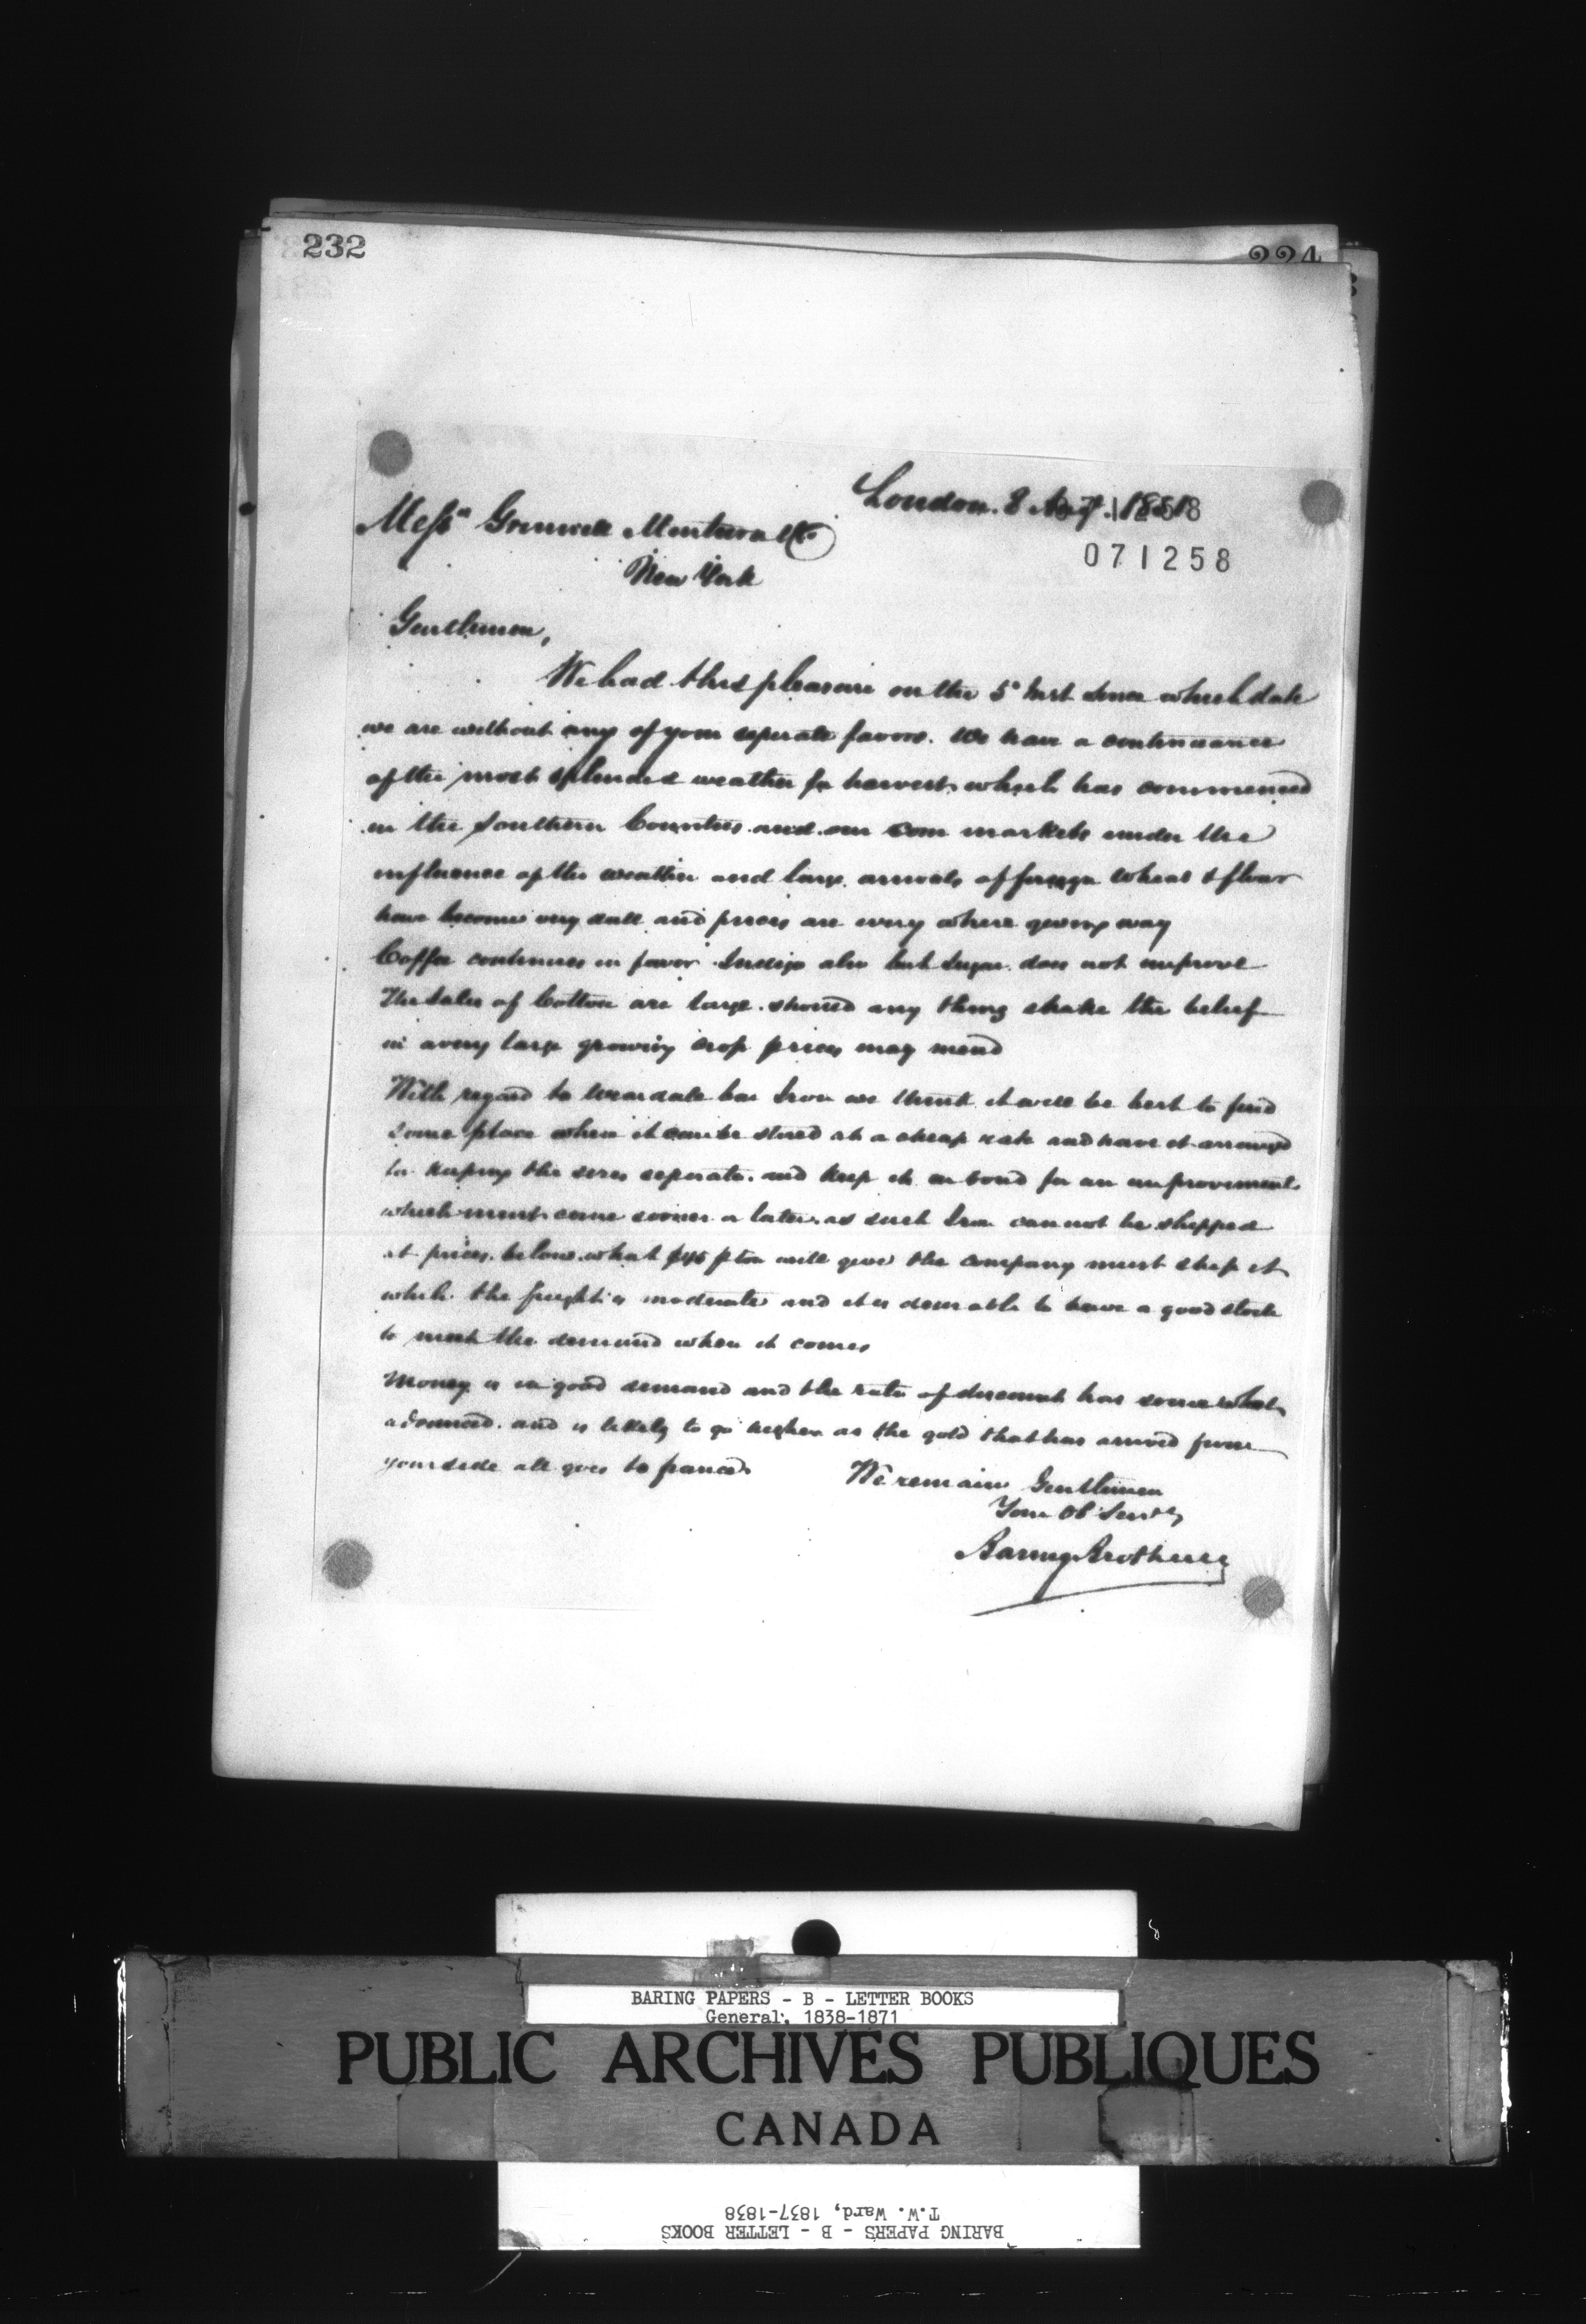 232
224
London. 8 Augt. 1851
071258
Messrs Grinnell Minturn & Co
New York
Gentlemen,
We had this pleasure on the 5 Inst since which date
we are without any of your seperate favors. We have a continuance
of the most splendid weather for harvest which has commenced
in the Southern Counties and our corn markets under the
influence of the weather and large arrivals of foreign wheat & flour
have become very dull and prices are every where giving way
Coffee continues in favor Indigo also but Sugar does not improve
The Sales of Cotton are large. should any thing shake the belief
in a very large growing crop prices may mend
With regard to Weardale bar Iron we think it will be best to find
some place where it can be stored at a cheap rate and have it arranged
for keeping the sizes seperate. and keep it in bond for an improvement
which must come sooner or later. as such Iron cannot be shipped
at prices below what $45 p ton will give the company must ship it
while the freight is moderate and it is desirable to have a good stock
to meet the demand when it comes
Money is in good demand and the rate of discount has somewhat
advanced. and is likely to go higher as the gold that has arrived from
your side all goes to france.
We remain Gentlemen
Your Ob Servts
Baring Brothers
BARING PAPERS - B - LETTER BOOKS
General, 1838-1871
PUBLIC ARCHIVES PUBLIQUES
CANADA
T.W. Ward, 1837-1838
BARING PAPERS - B - LETTER BOOKS